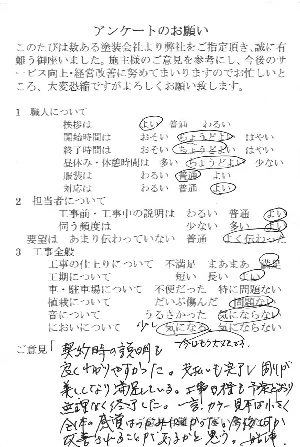 アンケートのお願い
このたびは数ある塗装会社より弊社をご指定頂き、誠に有
難う御座いました。施主様のご意見を参考にし、今後のサ
ービス向上・経営改善に努めてまいりますのでお忙しいとこ
ろ、大変恐縮ですがよろしくお願い致します。
1 職人について
挨拶は よい 普通 わるい
開始時間は おそい ちょうどよい はやい
終了時間は おそい ちょうどよい はやい
昼休み・休憩時間は 多い ちょうどよい 少ない
服装は わるい 普通 よい
対応は わるい 普通 よい
2 担当者について
工事前・工事中の説明は わるい 普通 よい
伺う頻度は 少ない 多い よい
要望は あまり伝わっていない 普通 よく伝わった
3 工事全般
工事の仕上りについて 不満足 まあまあ 満足
工期について 短い 長い よい
車・駐車場について 不便だった 特に問題ない
植栽について だいぶ傷んだ 問題なし
音について うるさかった 気にならない
においについて 少し 気になる 気にならない
ご意見「契約時の説明も
良くわかりやすかった。
美しくなり満足している。工事日程も予定より
無理なく終了した。一言、カラー見本は小さく
全体の感覚は
改善されることが